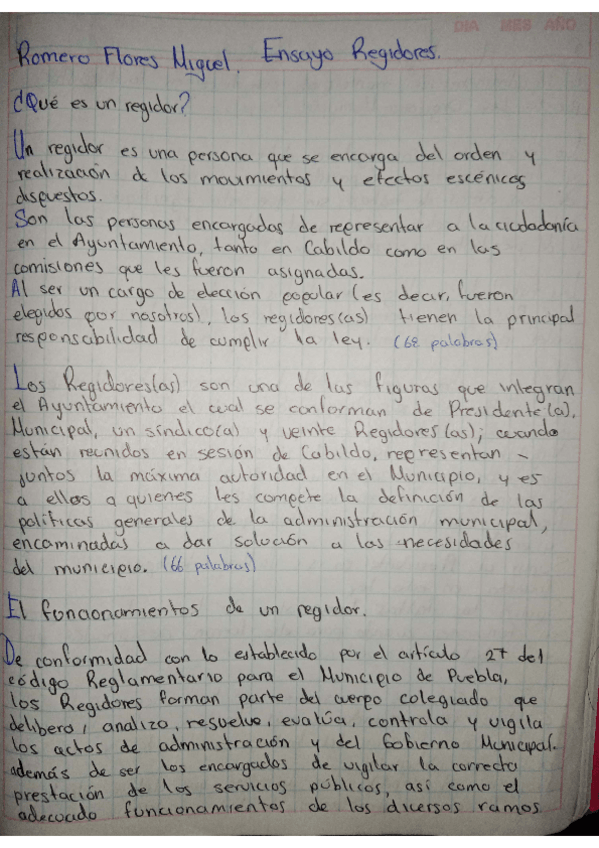 DIA MES AÑO
Romero Flores Miguel. Ensayo Regidores.
¿Qué es un regidor?
Un regidor es una persona que se encarga del orden y
realización de los movimientos y efectos escénicos
dispuestos.
Son las personas encargadas de representar a la ciudadanía
en el Ayuntamiento, tanto en Cabildo como en las
comisiones que les fueron asignadas.
Al ser un cargo de elección popular (es decir, fueron
elegidos por nosotros), los regidores(as) tienen la principal
responsabilidad de cumplir la ley. (68 palabras)
Los Regidores(as) son una de las figuras que integran
el Ayuntamiento el cual se conforman de Presidente(a).
Municipal, un síndico(a) y veinte Regidores(as); cuando
están reunidos en sesión de Cabildo, representan -
juntos la máxima autoridad en el Municipio, y es
a ellos a quienes les compete la definición de las
políticas generales de la administración municipal,
encaminadas a dar solución a las necesidades
del municipio. (66 palabras)
El funcionamientos de un regidor.
De conformidad con lo establecido por el artículo 27 del
código Reglamentario para el Municipio de Puebla,
los Regidores forman parte del cuerpo colegiado que
delibera, analiza, resuelve, evalúa, controla y vigila
los actos de administración y del Gobierno Municipal.
además de ser los encargados de vigilar la correcta
prestación de los servicios públicos, así como el
adecuado funcionamientos de los diversos ramos